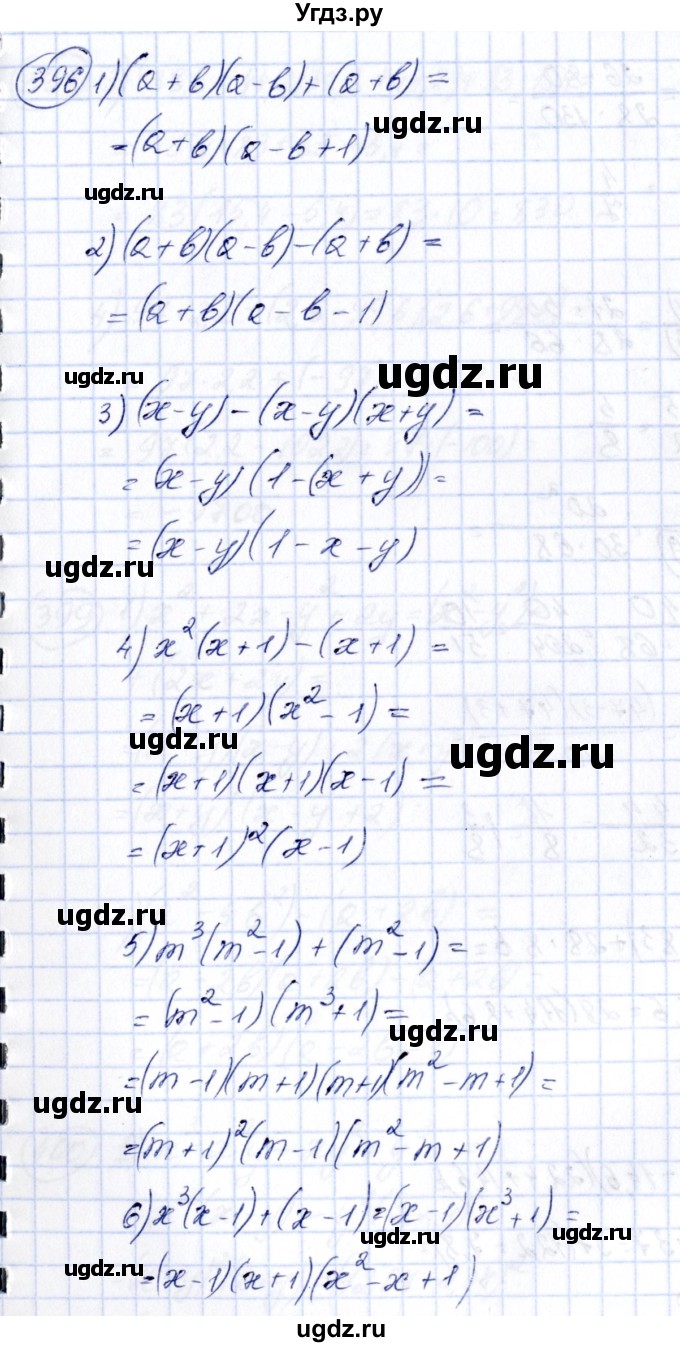 Угдз.ру
396 1) (a+в)(a-в)+(a+в)=
=(a+в)(a-в+1)
ugdz.ru
ugdz.ru
2) (a+в)(a-в)-(a+в)=
=(a+в)(a-в-1)
ugdz.ru
ugdz.ru
3) (x-y)-(x-y)(x+y)=
=(x-y)(1-(x+y))=
=(x-y)(1-x-y)
ugdz.ru
4) x²(x+1)-(x+1)=
=(x+1)(x²-1)=
ugdz.ru
ugdz.ru
=(x+1)(x+1)(x-1)=
=(x+1)²(x-1)
ugdz.ru
5) m³(m²-1)+(m²-1)=
=(m²-1)(m³+1)=
ugdz.ru
=(m-1)(m+1)(m+1)(m²-m+1)=
ugdz.ru
=(m+1)²(m-1)(m²-m+1)
6) x³(x-1)+(x-1)=(x-1)(x³+1)=
ugdz.ru
ugdz.ru
ugdz.ru
=(x-1)(x+1)(x²-x+1)
ugdz.ru